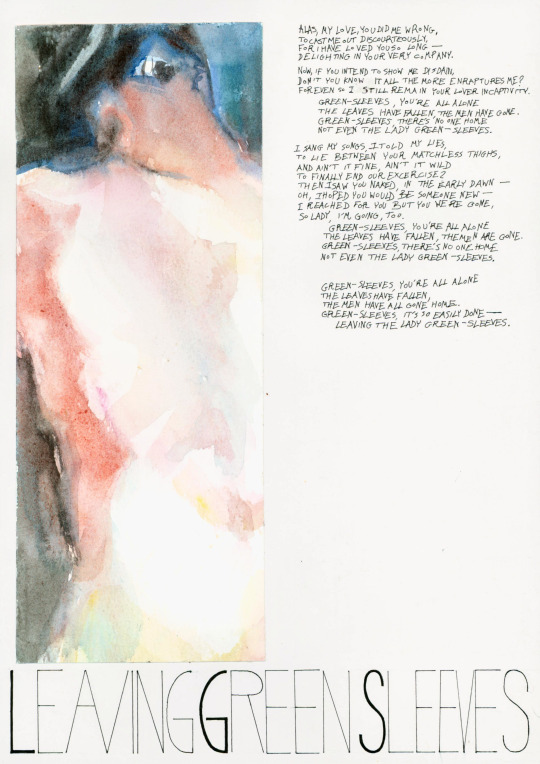 ALAS, MY LOVE, YOU DID ME WRONG,
TO CAST ME OUT DISCOURTEOUSLY,
FOR I HAVE LOVED YOU SO LONG —
DELIGHTING IN YOUR VERY COMPANY.
NOW, IF YOU INTEND TO SHOW ME DISDAIN,
DON'T YOU KNOW IT ALL THE MORE ENRAPTURES ME?
FOR EVEN SO I STILL REMAIN YOUR LOVER IN CAPTIVITY.
GREEN-SLEEVES, YOU'RE ALL ALONE
THE LEAVES HAVE FALLEN, THE MEN HAVE GONE.
GREEN-SLEEVES THERE'S NO ONE HOME
NOT EVEN THE LADY GREEN-SLEEVES.
I SANG MY SONGS, I TOLD MY LIES,
TO LIE BETWEEN YOUR MATCHLESS THIGHS,
AND AIN'T IT FINE, AIN'T IT WILD
TO FINALLY END OUR EXCERCISE?
THEN I SAW YOU NAKED, IN THE EARLY DAWN —
OH, I HOPED YOU WOULD BE SOMEONE NEW —
I REACHED FOR YOU BUT YOU WERE GONE,
SO LADY, I'M GOING, TOO.
GREEN-SLEEVES, YOU'RE ALL ALONE
THE LEAVES HAVE FALLEN, THE MEN ARE GONE.
GREEN-SLEEVES, THERE'S NO ONE HOME
NOT EVEN THE LADY GREEN-SLEEVES.
GREEN-SLEEVES, YOU'RE ALL ALONE
THE LEAVES HAVE FALLEN,
THE MEN HAVE ALL GONE HOME.
GREEN-SLEEVES, IT'S SO EASILY DONE —
LEAVING THE LADY GREEN-SLEEVES.
LEAVING GREEN SLEEVES